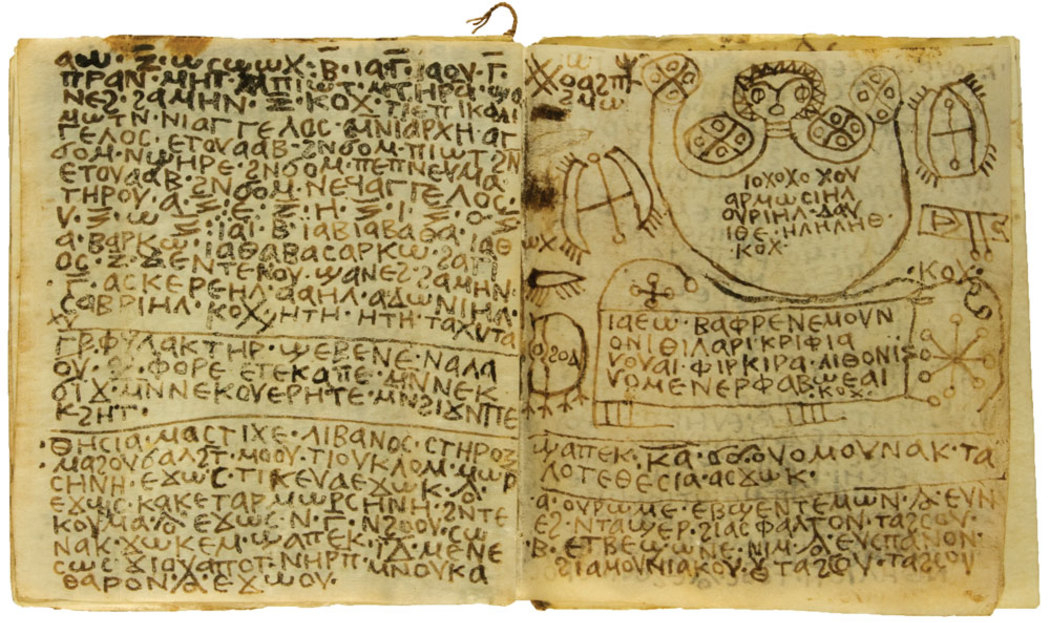 ⲡⲣⲁⲛ · ⲙⲡⲓⲱⲧ · ⲙⲧⲏⲣϥ · ϣⲁ
ⲛⲉϩ · ϩⲁⲙⲏⲛ · ⲝ · ⲕⲟⲭ · ϯⲉⲡⲓⲕⲁⲗⲓ
ⲙⲱⲧⲛ · ⲛⲓⲁⲅⲅⲉⲗⲟⲥ · ⲙⲛⲓⲁⲣⲭⲏⲁⲅ
ⲅⲉⲗⲟⲥ · ⲉⲧⲟⲩⲁⲁⲃ · ϩⲛϭⲟⲙ · ⲡⲓⲱⲧ · ϩⲛ
ϭⲟⲙ · ⲛⲓϣⲏⲣⲉ · ϩⲛϭⲟⲙ · ⲡⲉⲡⲛⲉⲩⲙⲁ
ⲉⲧⲟⲩⲁⲁⲃ · ϩⲛϭⲟⲙ · ⲛⲉϥⲁⲅⲅⲉⲗⲟⲥ ·
ⲧⲏⲣⲟⲩ · ⲁ · ⲝ · ⲉ · ⲝ · ⲏ · ⲝ · ⲓ · ⲝ · ⲟ · ⲝ
ⲩ · ⲝ · ⲱ · ⲝ · ⲓⲁⲓ · ⲃ · ⲓⲁⲃⲓⲁⲃⲁⲑⲁ · ⲓⲁⲑ
ⲁ · ⲃⲁⲣⲕⲱ · ⲓⲁⲑⲁⲃⲁⲥⲁⲣⲕⲱ · ϩⲁⲡ
ϣⲁⲛⲉϩ · ϩⲁⲙⲏⲛ ·
ⲅ · ⲁⲥⲕⲉⲣⲉⲏⲗ · ⲁⲁⲏⲗ · ⲁⲇⲱⲛⲓⲏⲗ ·
ⲥⲁⲃⲣⲓⲏⲗ · ⲕⲟⲭ · ⲏⲧⲏ · ⲏⲧⲏ · ⲧⲁⲭⲩⲧⲁ
ⲭⲩ
ⲅⲃ · ⲫⲩⲗⲁⲕⲧⲏⲣ · ϣⲉⲃⲉⲛⲉ · ⲛⲁⲗⲁ
ⲟⲩ · ⲝ · ⲫⲟⲣⲉ · ⲉⲧⲉⲕⲁⲡⲉ · ⲙⲛⲛⲉⲕ
ϭⲓϫ · ⲙⲛⲛⲉⲕⲟⲩⲉⲣⲏⲧⲉ · ⲙⲛϩⲓϫⲛⲡⲉ
ⲕϩⲏⲧ ·
ⲑⲏⲥⲓⲁ · ⲙⲁⲥⲧⲓⲭⲉ · ⲗⲓⲃⲁⲛⲟⲥ · ⲥⲧⲏⲣⲟⲝ
ⲙⲁϩⲟⲩⲥⲁⲗϩⲧ · ⲙⲟⲟⲩ · ϯⲟⲩⲕⲗⲟⲙ · ⲙⲱⲣ
ⲥⲏⲛⲏ · ⲉϫⲱⲥ
ⲉϫⲱⲥ · ⲕⲁⲕⲉⲧⲁⲣ · ⲙⲱⲣⲥⲏⲛⲏ · ϩⲛⲧⲉ
ⲉϫⲱⲥ · ⲛ · ⲅ · ⲛϩⲟⲟⲩ · ⲥⲱ
ⲛⲁⲕ · ϫⲱⲕⲉⲙ · ϣⲁⲡⲉⲕ · ⲓⲇ · ⲙⲉⲛⲉ
ⲥⲱⲥ · ϫⲓⲟⲩⲁⲡⲟⲧ · ⲛⲏⲣⲡ · ⲙⲛⲟⲩⲕⲁ
ⲑⲁⲣⲟⲛ · ⲗ · ⲉϫⲱⲟⲩ ·
ⲓⲟⲭⲟⲭⲟ ⲭⲟⲩ
ⲁⲣⲙⲱⲥⲓⲏⲗ
ⲟⲩⲣⲓⲏⲗ · ⲇⲁⲩ
ⲓⲑⲉ · ⲏⲗⲏⲗⲏⲑ ·
· ⲕⲟⲭ
ⲕⲟⲭ ·
ⲓⲁⲉⲱ · ⲃⲁⲫⲣⲉⲛⲉⲙⲟⲩⲛ
ⲟⲛⲓⲑⲓⲗⲁⲣⲓⲕⲣⲓⲫⲓⲁ
ⲩⲟⲩⲁⲓ · ⲫⲓⲣⲕⲓⲣⲁ · ⲗⲓⲑⲟⲛⲓⲥ
ⲩⲟⲙⲉⲛⲉⲣⲫⲁⲃⲱⲉⲁⲓ
· ⲕⲟⲭ ·
ϣⲁⲡⲉⲕ · ⲕⲁ · ϭⲟϭⲟⲩⲟⲙⲟⲩⲛⲁⲕ · ⲧⲁ
ⲗⲟⲧⲉⲑⲉⲥⲓⲁ · ⲁⲥϫⲱⲕ ·
ⲁ · ⲟⲩⲣⲱⲙⲉ · ⲉⲃⲱⲉⲛⲧⲉⲙⲱⲛ · ⲗ · ⲉⲩⲛ
ⲉϩ · ⲛⲧⲁⲩⲉⲣ · ϩⲓⲁⲥⲫⲁⲗⲧⲟⲛ · ⲧⲁϩⲥⲟⲩ ·
· ⲃ · ⲉⲧⲃⲉϣⲱⲛⲉ · ⲛⲓⲙ · ⲗ · ⲉⲩⲉⲡⲁⲛⲟⲛ ·
ϩⲓⲁⲙⲟⲩⲛⲓⲁⲕⲟⲩ · ⲑ · ⲧⲁϩⲥⲟⲩ · ⲧⲁϩⲥⲟⲩ